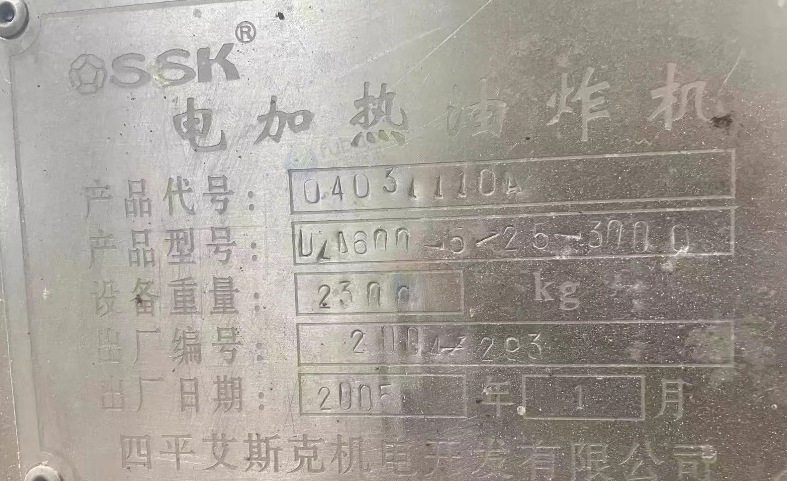 SSK®
电加热油炸机
产品代号：
产品型号：
设备重量：2300 kg
出厂编号：2004-293
出厂日期：2005年1月
四平艾斯克机电开发有限公司